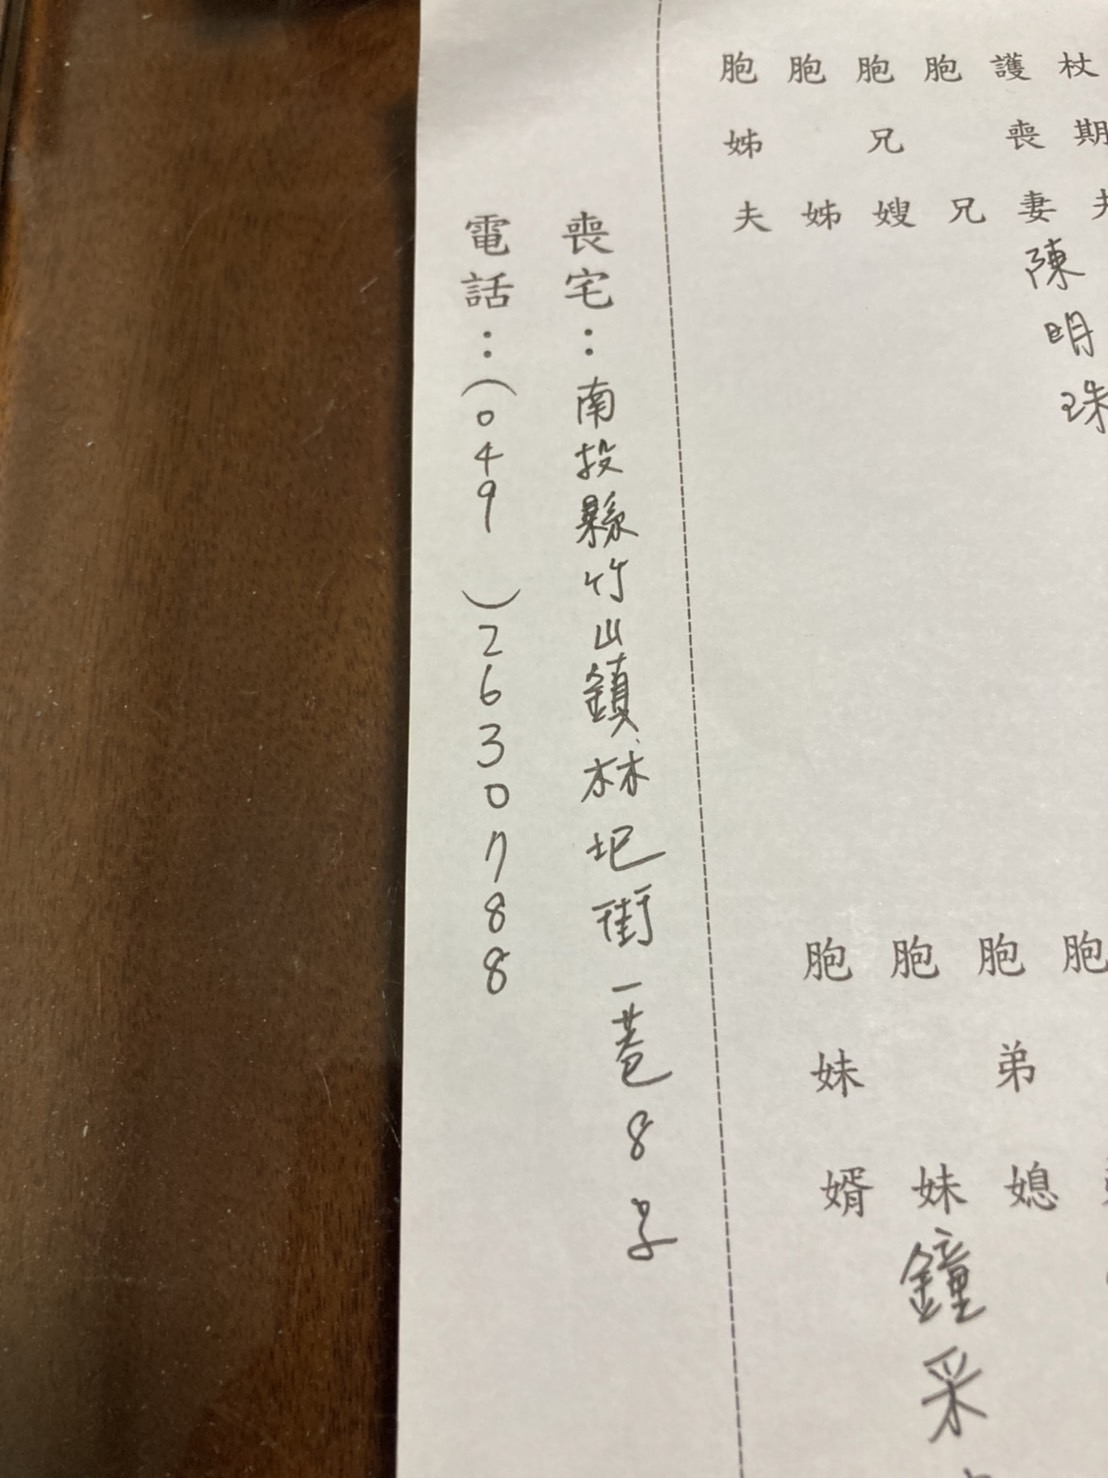 杖期夫
護喪妻陳明珠
胞兄
胞兄嫂
胞姊
胞姊夫
胞
胞弟媳
胞妹鐘采
胞妹婿
喪宅：南投縣竹山鎮林圯街一巷8号
電話：（049）2630788